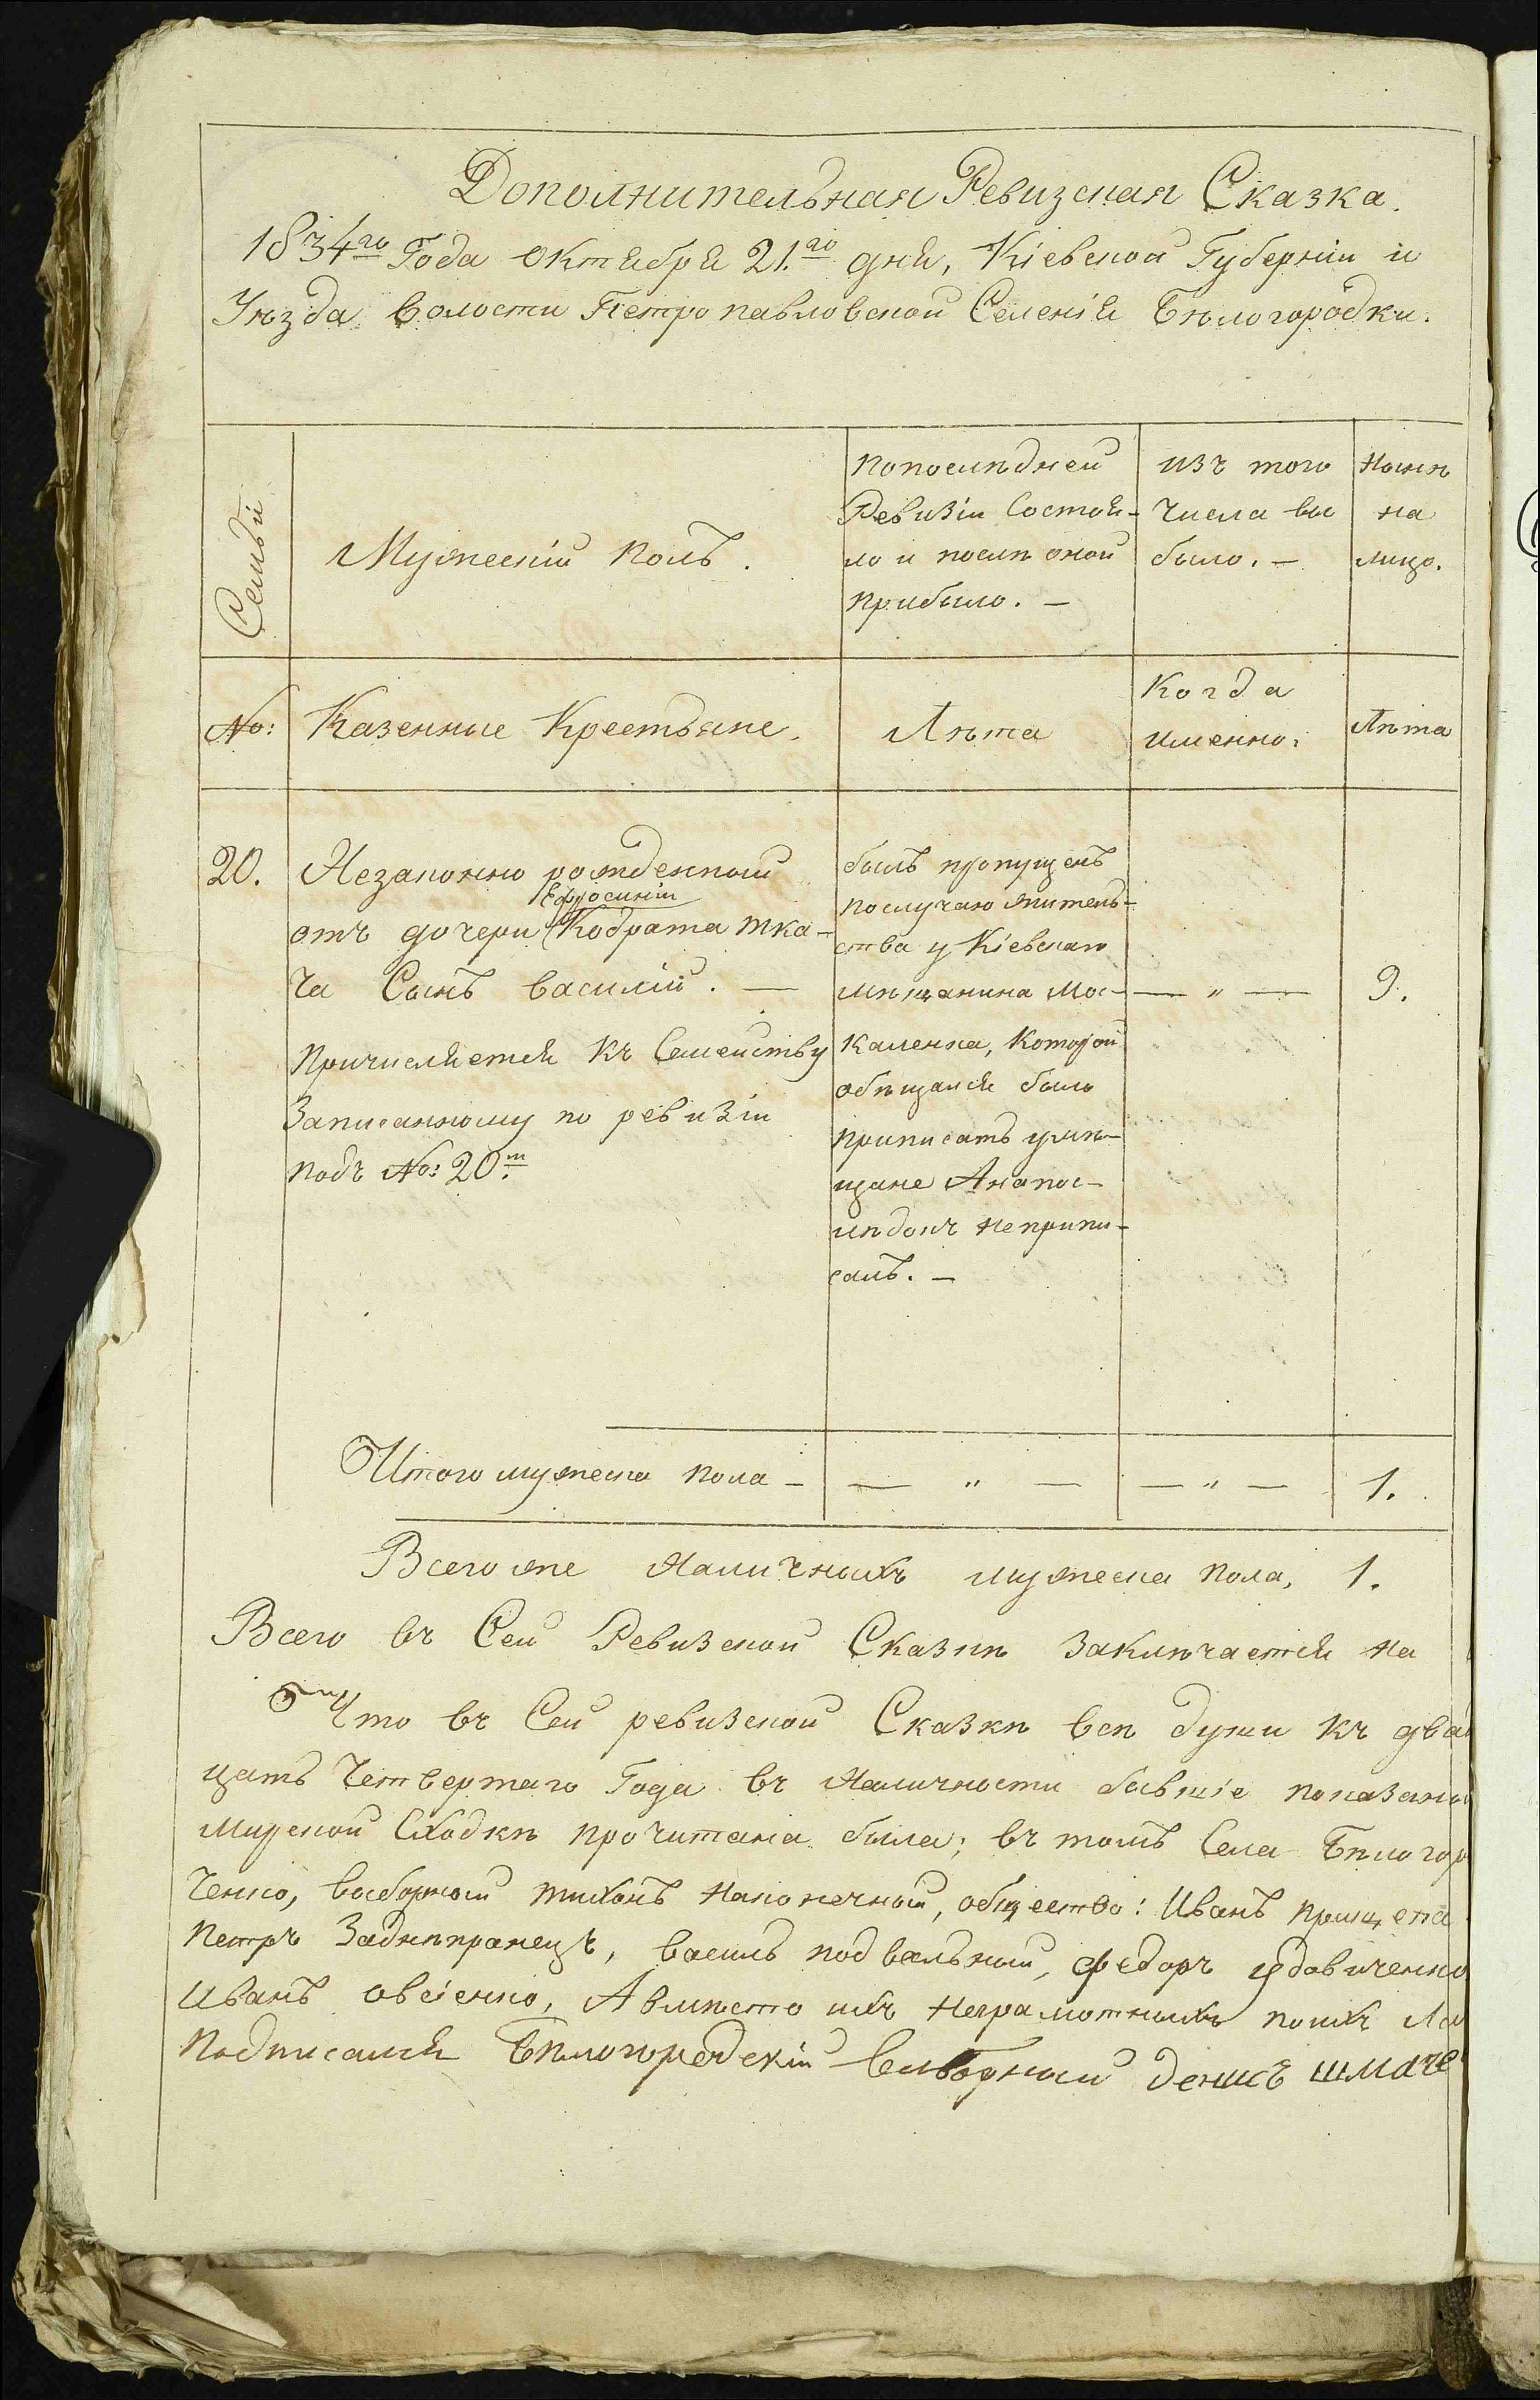 Дополнительная Ревизская Сказка.
1834го Года октября 21.го дня, Кіевской Губерніи и
Уѣзда волости Петропавловской Селенія Бѣлогородки.
Семьи
Мужескій полъ.
попослѣдней
Ревизіи Состоя-
ло и послѣ оной
прибыло. —
изъ того
числа вы
было. —
Нынѣ
на
лицо.
No:
Казенные Крестьяне.
Лѣта
Когда
именно.
Лѣта
20.
Незаконно рожденный
Ефросиніи
отъ дочери Кодрата тка-
ча Сынъ василій. —
Причисляется къ Семейству
Записанному по ревизіи
подъ No: 20м
былъ пропущенъ
послучаю житель-
ства у Кіевскаго
мѣщанина Мос-
каленка, который
обѣщался былъ
приписать умѣ-
щане Анапос-
лѣдокъ неприпи-
салъ. —
— " —
9.
Итого мужеска пола —
— " —
— " —
1.
Всего же Наличныхъ мужеска пола, 1.
Всего въ Сей Ревизской Сказкѣ Заключается на
Что въ Сей ревизской Сказкѣ всѣ души къ два
цать Четвертаго Года въ Наличности бывшіе показаны
Мирской Сходкѣ прочитана была; въ томъ Села Бѣлогор
ченко, выборный тихонъ Наконечный, общество: Иванъ прищепа
Петръ Заднѣпранецъ, василь подвальный, федоръ удовиченко
Иванъ овсіенко, Авмѣсто ихъ Неграмотныхъ поихъ
Подписался Бѣлогородскій выборный денисъ шмаче